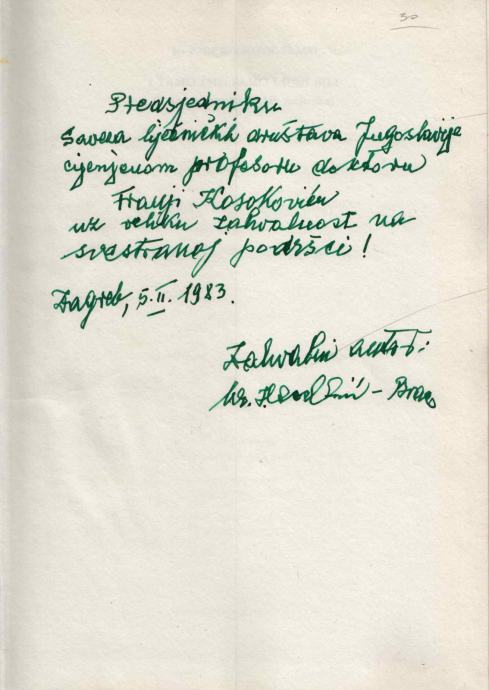 30
Predsjedniku
Saveza liječničkih društava Jugoslavije
cijenjenom profesoru doktoru
Franji Kosokoviću
uz veliku zahvalnost na
svestranoj podršci!
Zagreb, 5. II. 1983.
Zahvalni autor: